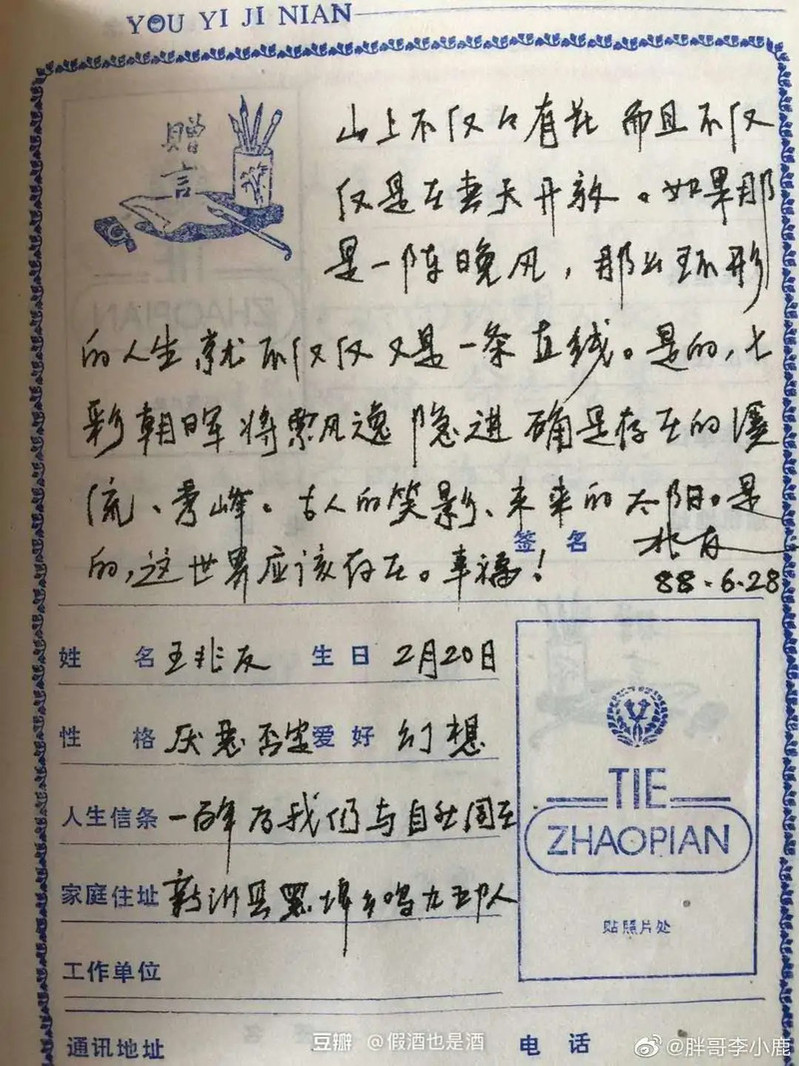 YOU YI JI NIAN
赠言
山上不仅只有花 而且不仅
仅是在春天开放。如果那
是一阵晚风，那么环形
的人生就不仅仅又是一条直线。是的，七
彩朝晖将飘逸隐进确是存在的溪
流、秀峰。古人的笑影、未来的太阳。是
的，这世界应该存在。幸福！
签名 兆友
88.6.28
姓名 王兆友 生日 2月20日
性格 厌恶否定 爱好 幻想
人生信条 一百年后我们与自然同在
家庭住址 新洲县 乡 人
工作单位
通讯地址 电话
TIE
ZHAOPIAN
贴照片处
豆瓣 @假酒也是酒
@胖哥李小鹿